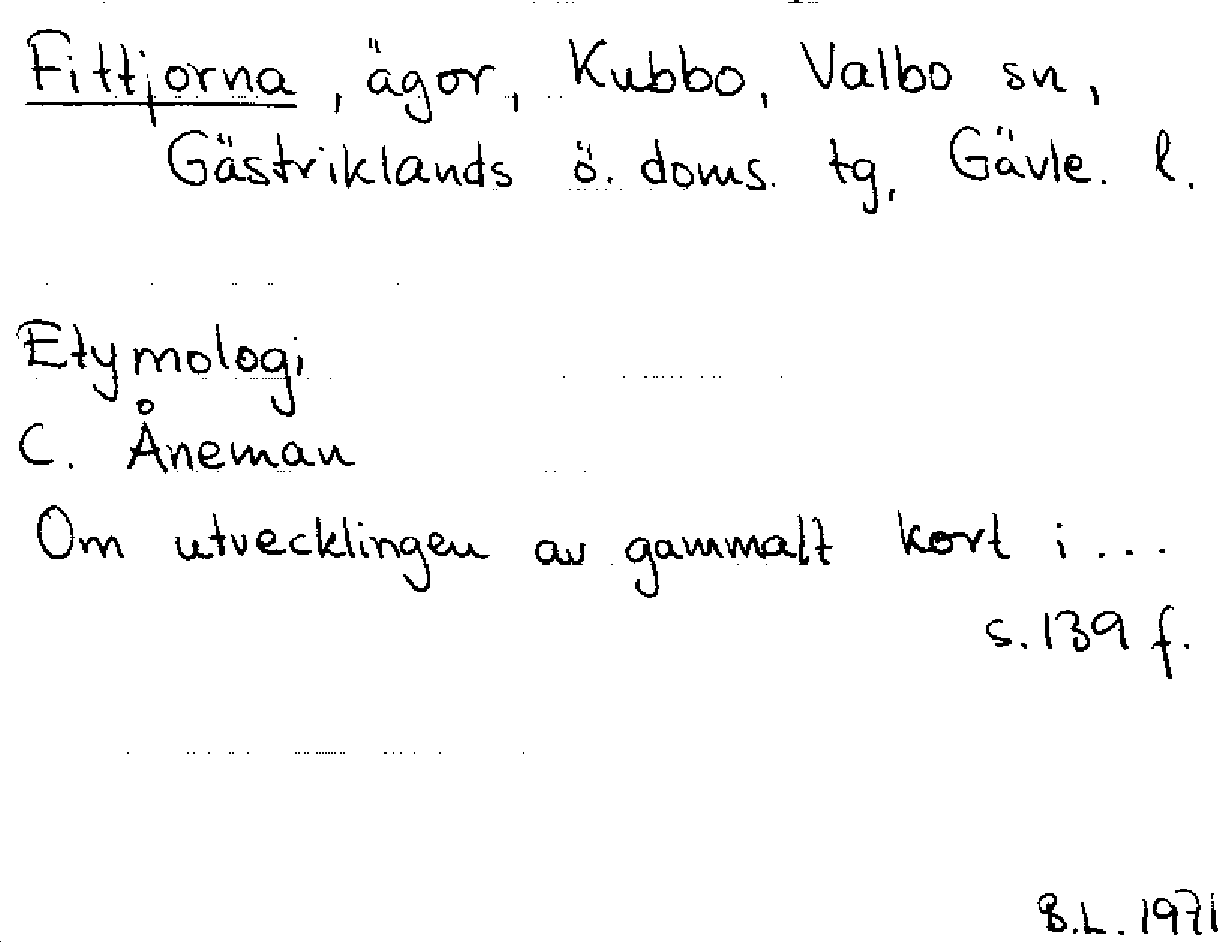 Fittjorna, ägor, Kubbo, Valbo sn,
Gästriklands ö. doms. tg, Gävle. l.
Etymologi
C. Åneman
Om utvecklingen av gammalt kort i...
s. 139 f.
B.L. 1971